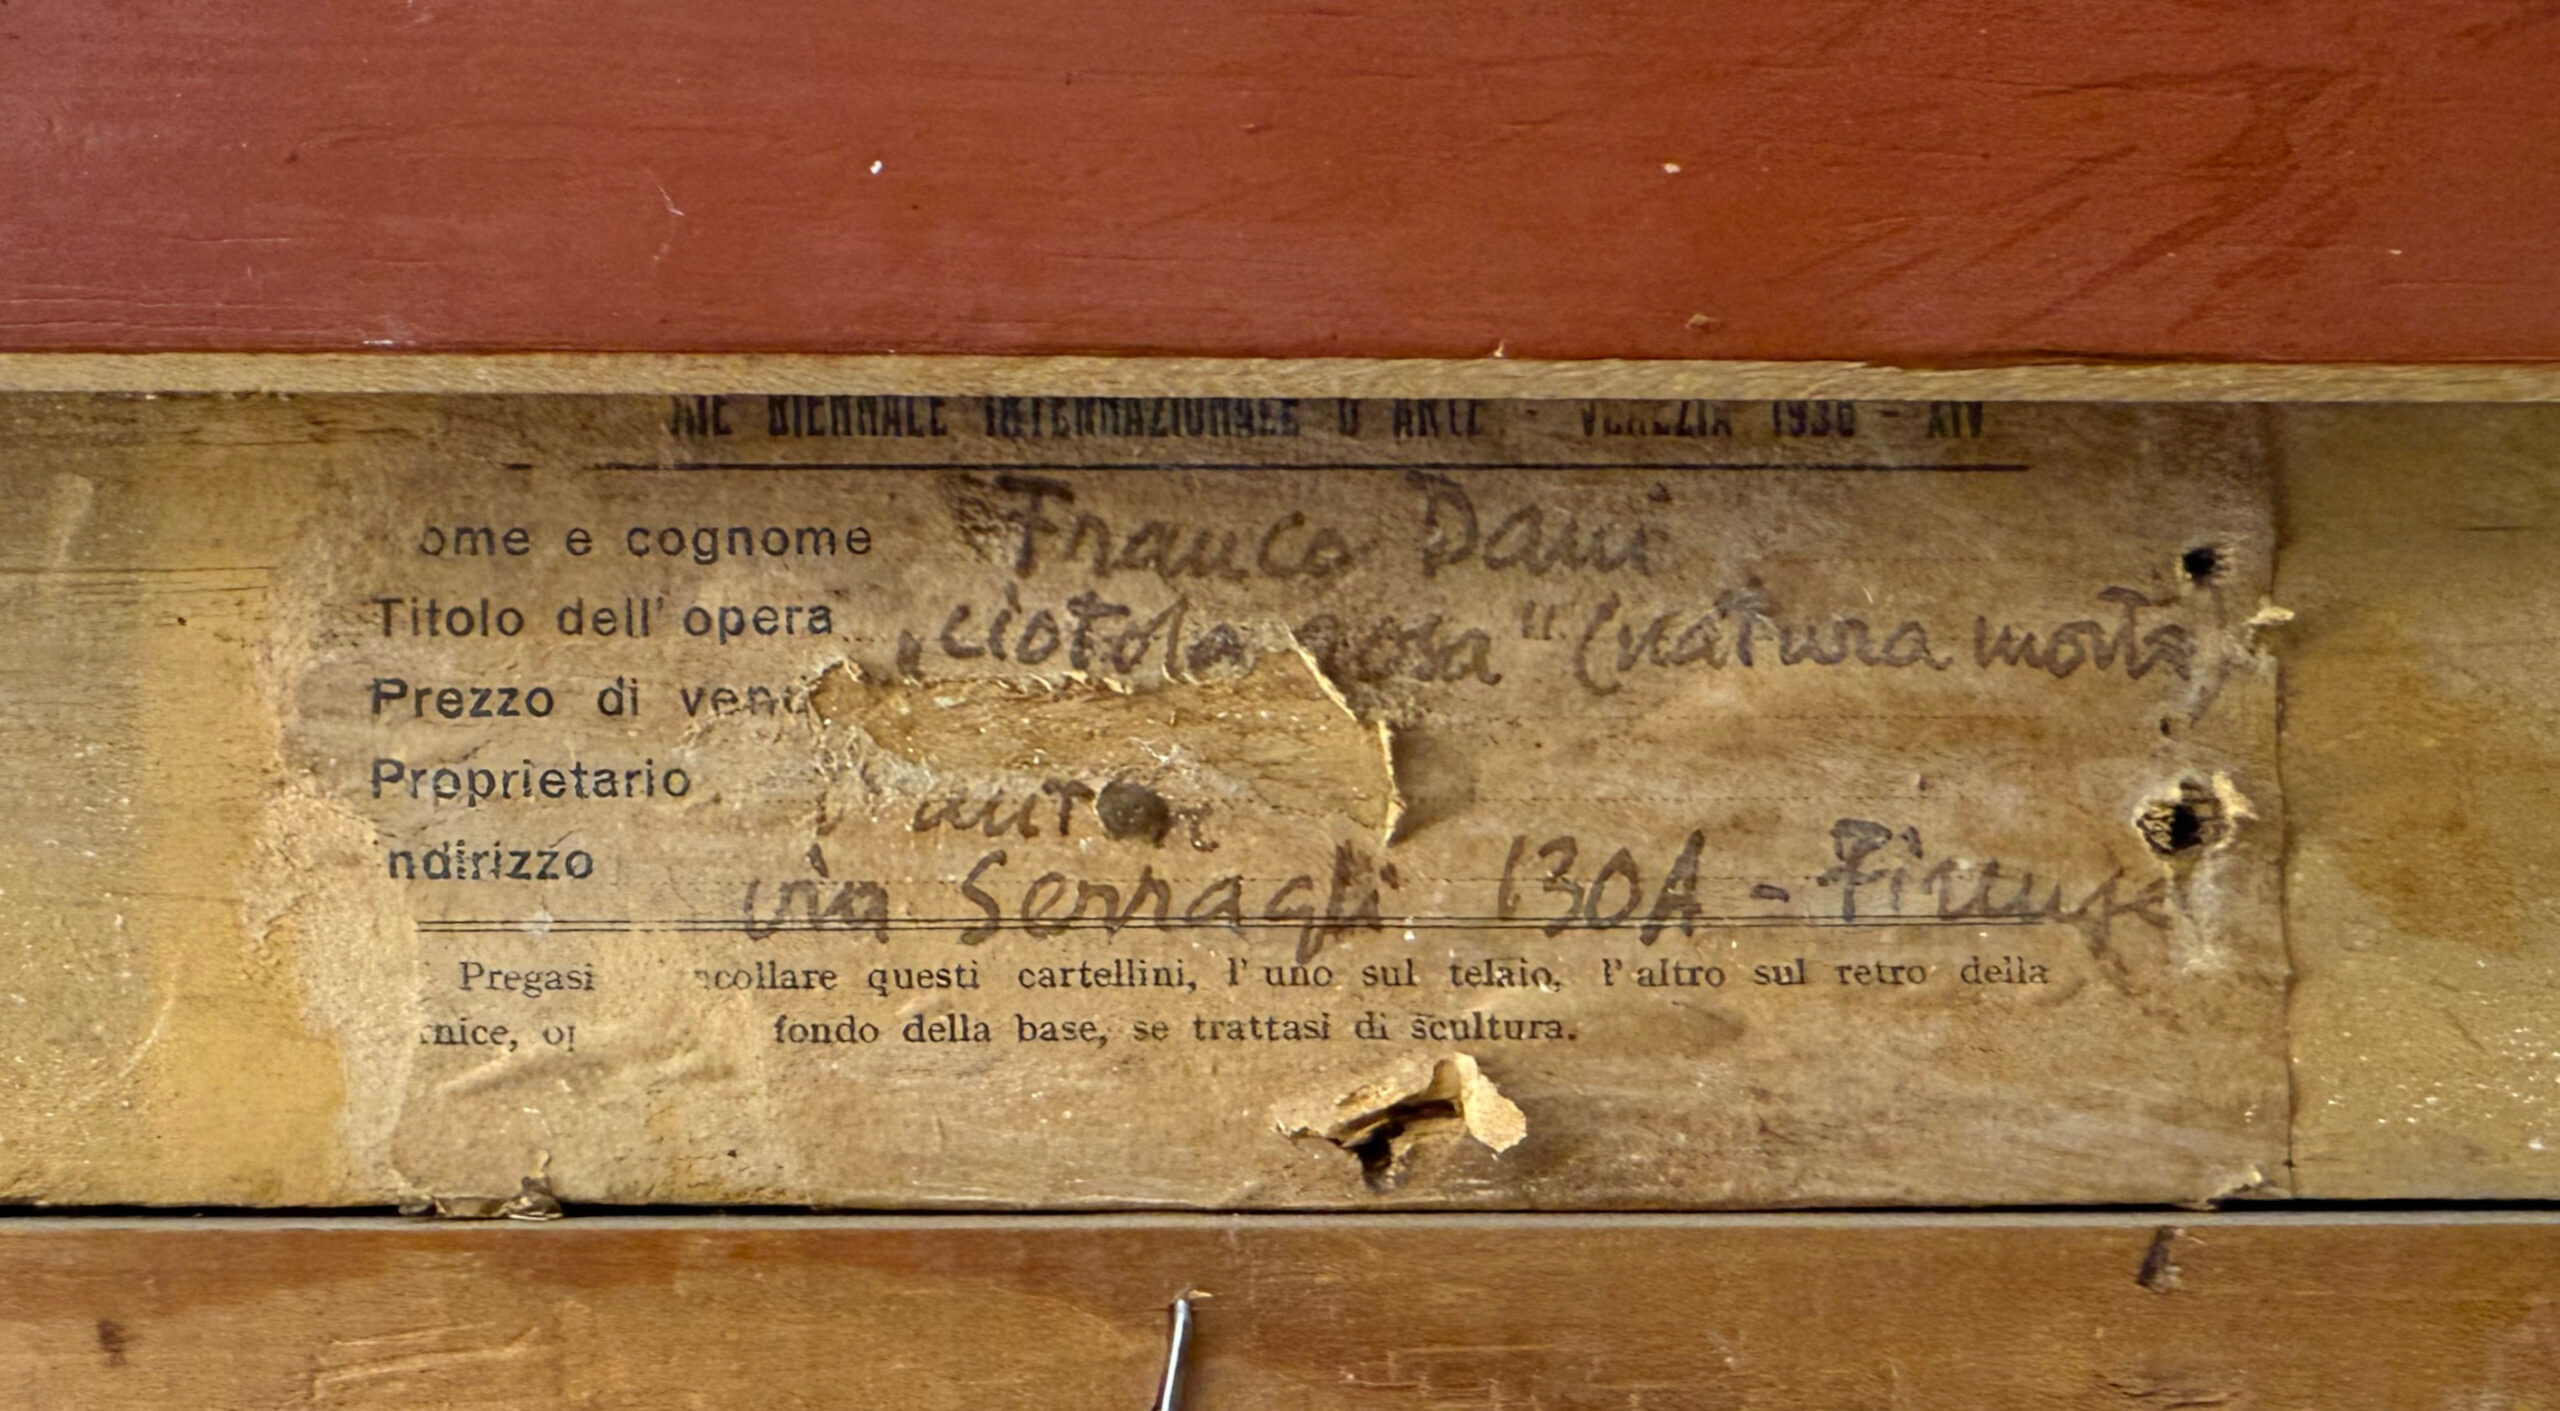 BIENNALE INTERNAZIONALE D'ARTE - VENEZIA 1936 - XIV
ome e cognome Franco Dani
Titolo dell'opera „ciotola rosa" (natura morta)
Prezzo di vend
Proprietario l'autore
ndirizzo via Serragli 130A - Firenze
Pregasi collare questi cartellini, l'uno sul telaio, l'altro sul retro della
nice, op fondo della base, se trattasi di scultura.